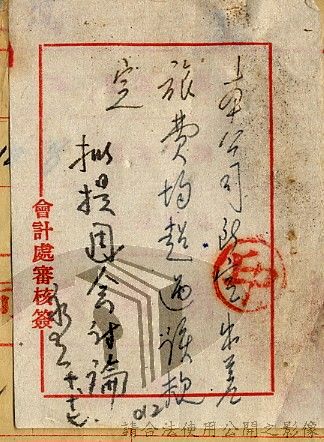 本公司所定出差
旅費均超過該規
定
擬提周會討論
會計處審核簽
請合法使用公開之影像